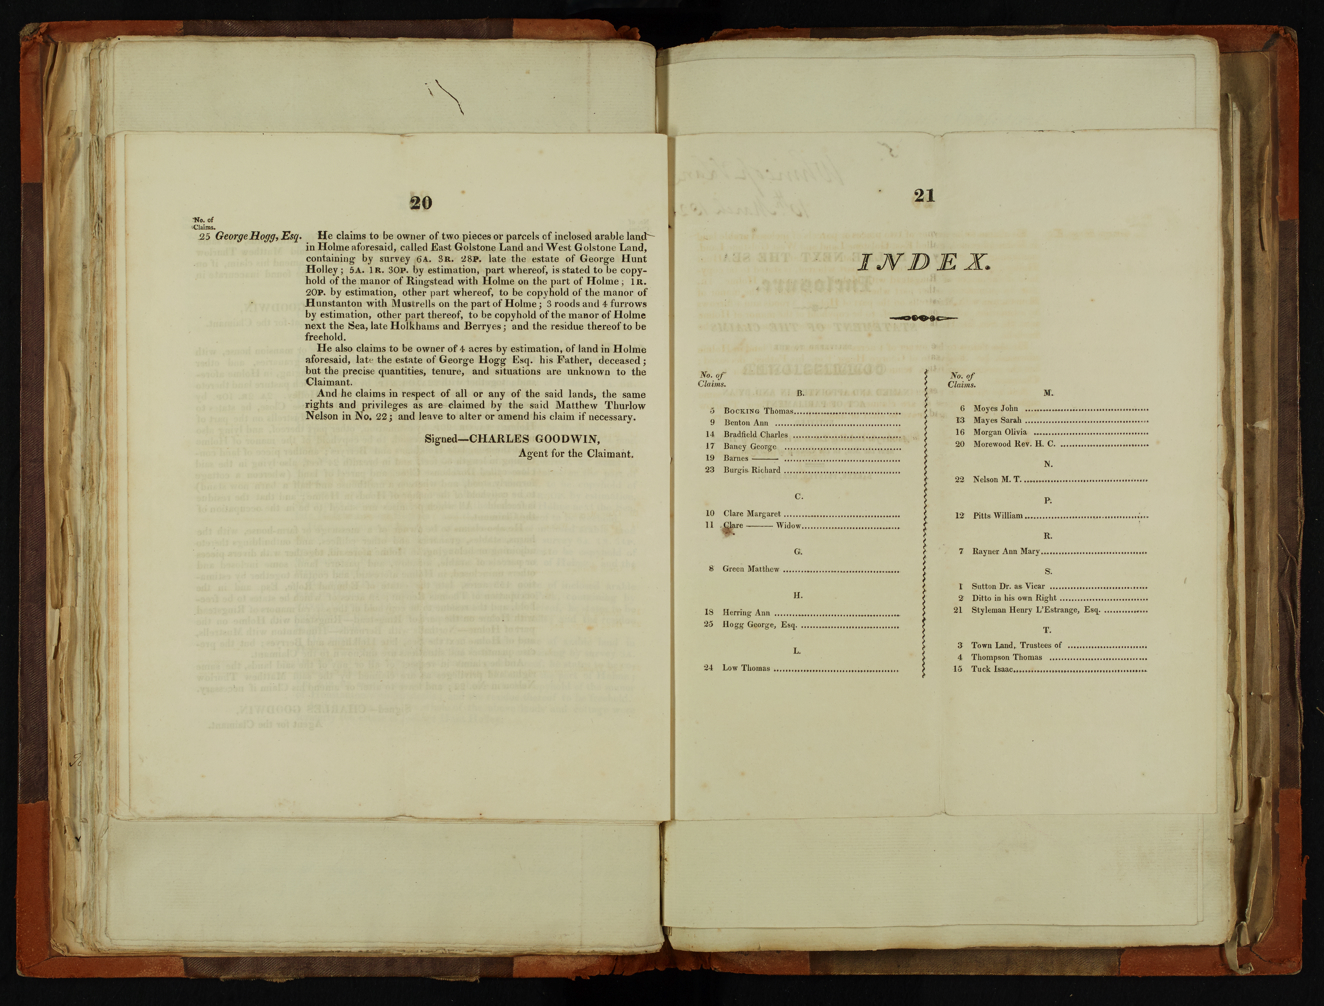 20
No. of
Claims.
25 George Hogg, Esq. He claims to be owner of two pieces or parcels of inclosed arable land
in Holme aforesaid, called East Golstone Land and West Golstone Land,
containing by survey 6A. 3R. 28P. late the estate of George Hunt
Holley; 5A. 1R. 30P. by estimation, part whereof, is stated to be copy-
hold of the manor of Ringstead with Holme on the part of Holme; 1R.
20P. by estimation, other part whereof, to be copyhold of the manor of
Hunstanton with Mustrells on the part of Holme; 3 roods and 4 furrows
by estimation, other part thereof, to be copyhold of the manor of Holme
next the Sea, late Holkhams and Berryes; and the residue thereof to be
freehold.
He also claims to be owner of 4 acres by estimation, of land in Holme
aforesaid, late the estate of George Hogg Esq. his Father, deceased;
but the precise quantities, tenure, and situations are unknown to the
Claimant.
And he claims in respect of all or any of the said lands, the same
rights and privileges as are claimed by the said Matthew Thurlow
Nelson in No. 22; and leave to alter or amend his claim if necessary.
Signed—CHARLES GOODWIN,
Agent for the Claimant.
21
INDEX.
No. of
Claims.
B.
5 BOCKING Thomas
9 Benton Ann
14 Bradfield Charles
17 Bancy George
19 Barnes ———
23 Burgis Richard
C.
10 Clare Margaret
11 Clare ——— Widow
G.
8 Green Matthew
H.
18 Herring Ann
25 Hogg George, Esq.
L.
24 Low Thomas
No. of
Claims.
M.
6 Moyes John
13 Mayes Sarah
16 Morgan Olivia
20 Morewood Rev. H. C.
N.
22 Nelson M. T.
P.
12 Pitts William
R.
7 Rayner Ann Mary
S.
1 Sutton Dr. as Vicar
2 Ditto in his own Right
21 Styleman Henry L'Estrange, Esq.
T.
3 Town Land, Trustees of
4 Thompson Thomas
15 Tuck Isaac